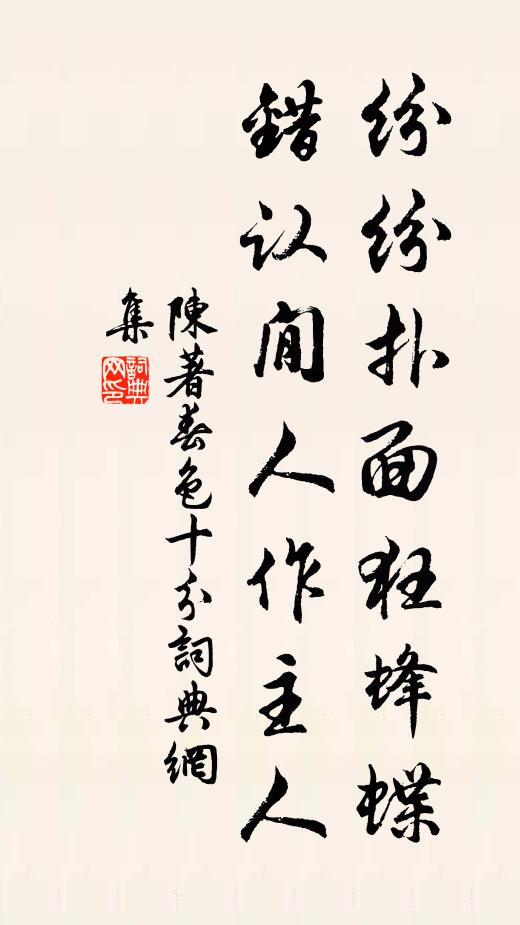 纷纷扑面狂蜂蝶
錯认閒人作主人
陳著春色十分詞典網
集
詞典
网印